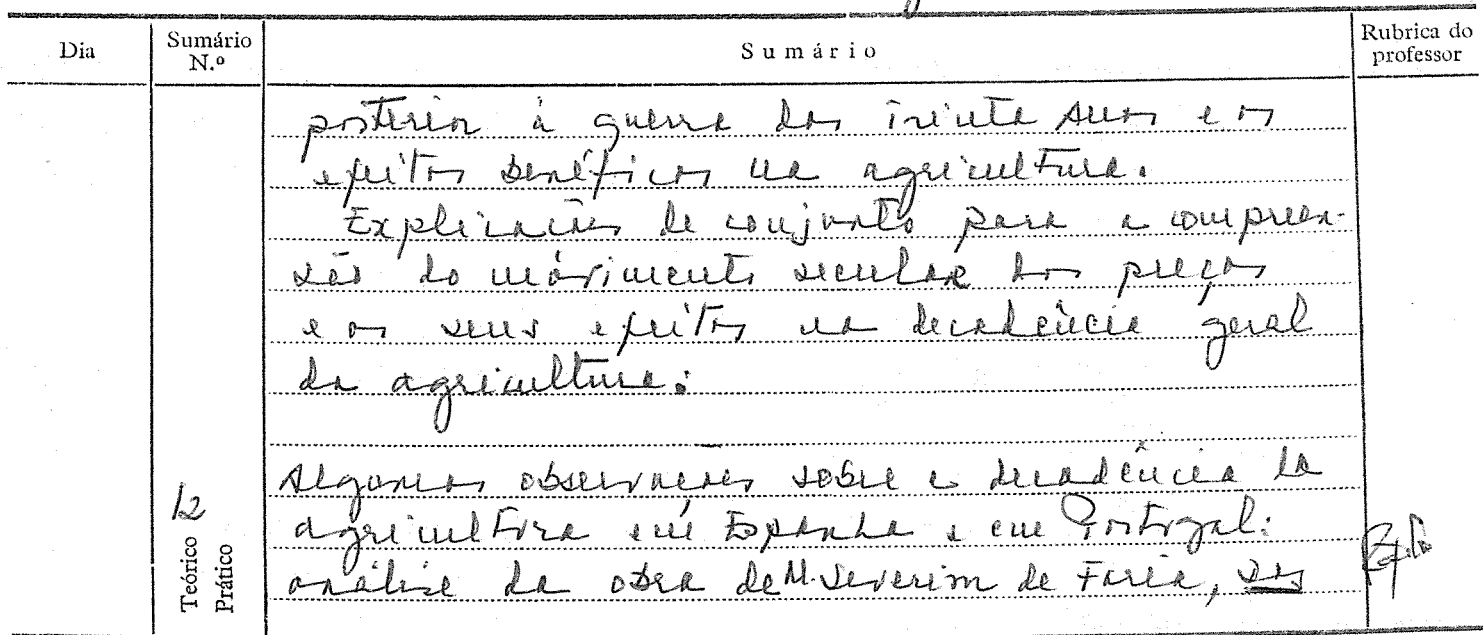 Dia Sumário N.º Sumário Rubrica do professor
posterior à guerra dos trinta anos e os
efeitos benéficos na agricultura.
Explicações de conjunto para a compreen-
são do movimento secular dos preços
e os seus efeitos na decadência geral
da agricultura.
12 Teórico Prático
Algumas observações sobre a decadência da
agricultura em Espanha e em Portugal:
análise da obra de M. Severim de Faria,